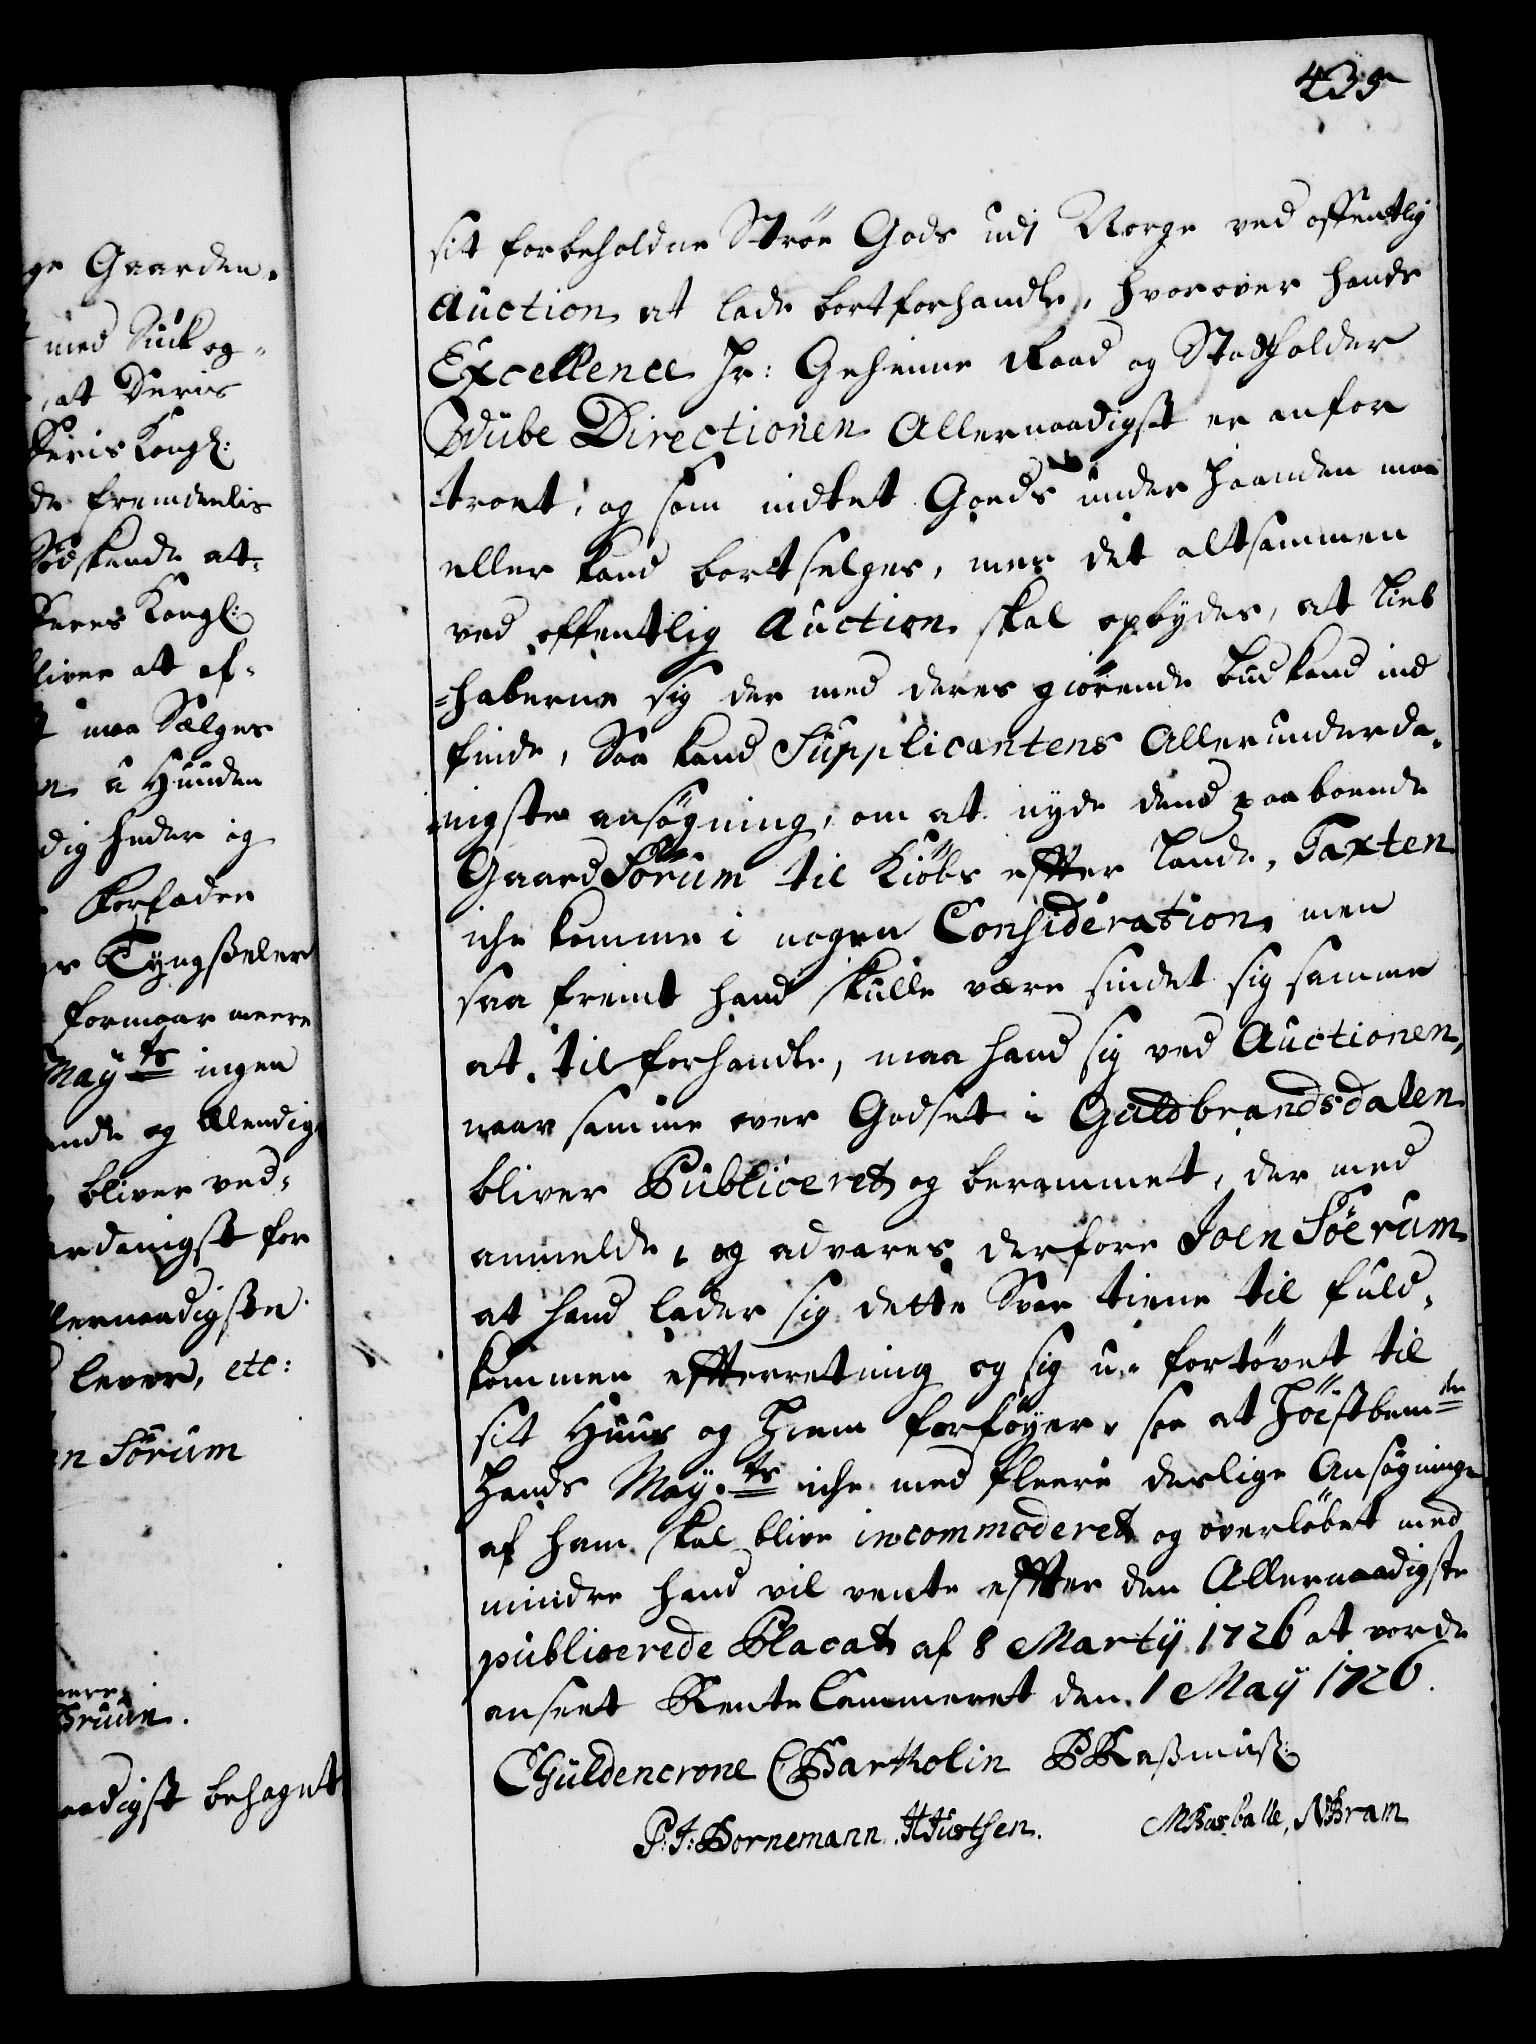 435
sit forbeholdne Strøe Gods udi Norge ved offentlig
Auction at lade bortforhandle, hvorover hands
Excellence Hr: Geheime Raad og Stadtholder
Wibe Directionen Allernaadigst er anfor
troet; og som indtet Goeds under Haanden maa
eller kand bortselges, men det altsammen
ved offentlig Auction skal opbydes, at Lieb
=haberne sig der med deres giørende bud kand ind
finde, Saa kand Supplicantens Allerunderda,
nigste ansøgning, om at nyde dend paaboende
Gaard Sørum til Kiøbs effter Lands, Taxten
iche komme i nogen Consideration, men
saa fremt hand skulle være sindet sig samme
at tilforhandle, maa hand sig ved Auctionen,
naar samme over Godset i Guldbrandsdalen
bliver Publiceret og berammet, der med
anmelde, og advares derfore Joen Søerum
at hand lader sig dette Svar tiene til fuld,
kommen effterretning og sig u-fortøvet til
sit Huus og Hiem forføyer, saa at Høistbemte
Hands Mayts iche med fleere deslige Ansøgninge
af ham skal blive incommoderet og overløbet med
mindre hand vil vente effter den Allernaadigste
publicerede Placat af 8 Martij 1726 at vorde
anseet RenteCammeret den 1 May 1726.
CGüldencrone CBartholin PRaßmuß
P:J:Bornemann, HJustsen. MBasballe, NBram
ge Gaarden,
med Suck og,
at Deris
Deris Kongl:
de fremdeelis
Sødskende att,
Deres Kongl:
bliver att af,
maa Sælges
u Hunden
dig heder og
Forfader
Tyngßeler
formaar meere
Mayts ingen
og Elendige
bliver ved,
erdanigst for
llernaadigsten
lever, etc:
en Sørum
Bruun.
aadigst behaget